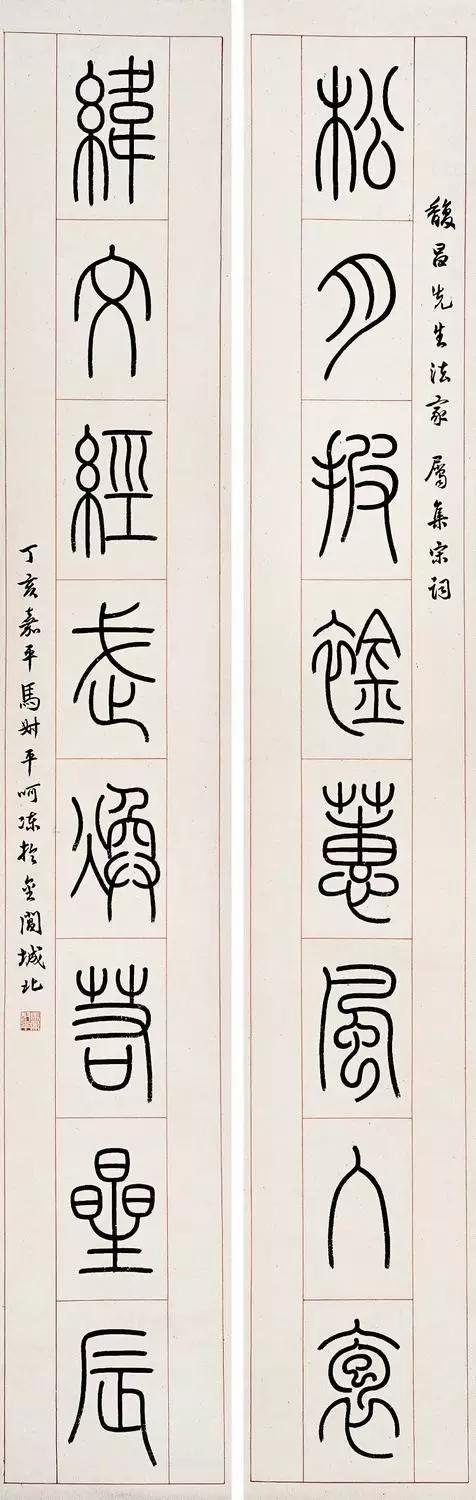 馥昌先生法家 屬集宋詞
松月披䘳蕙風入褱
緯文經武煥若星辰
丁亥嘉平馬平呵凍於金閶城北